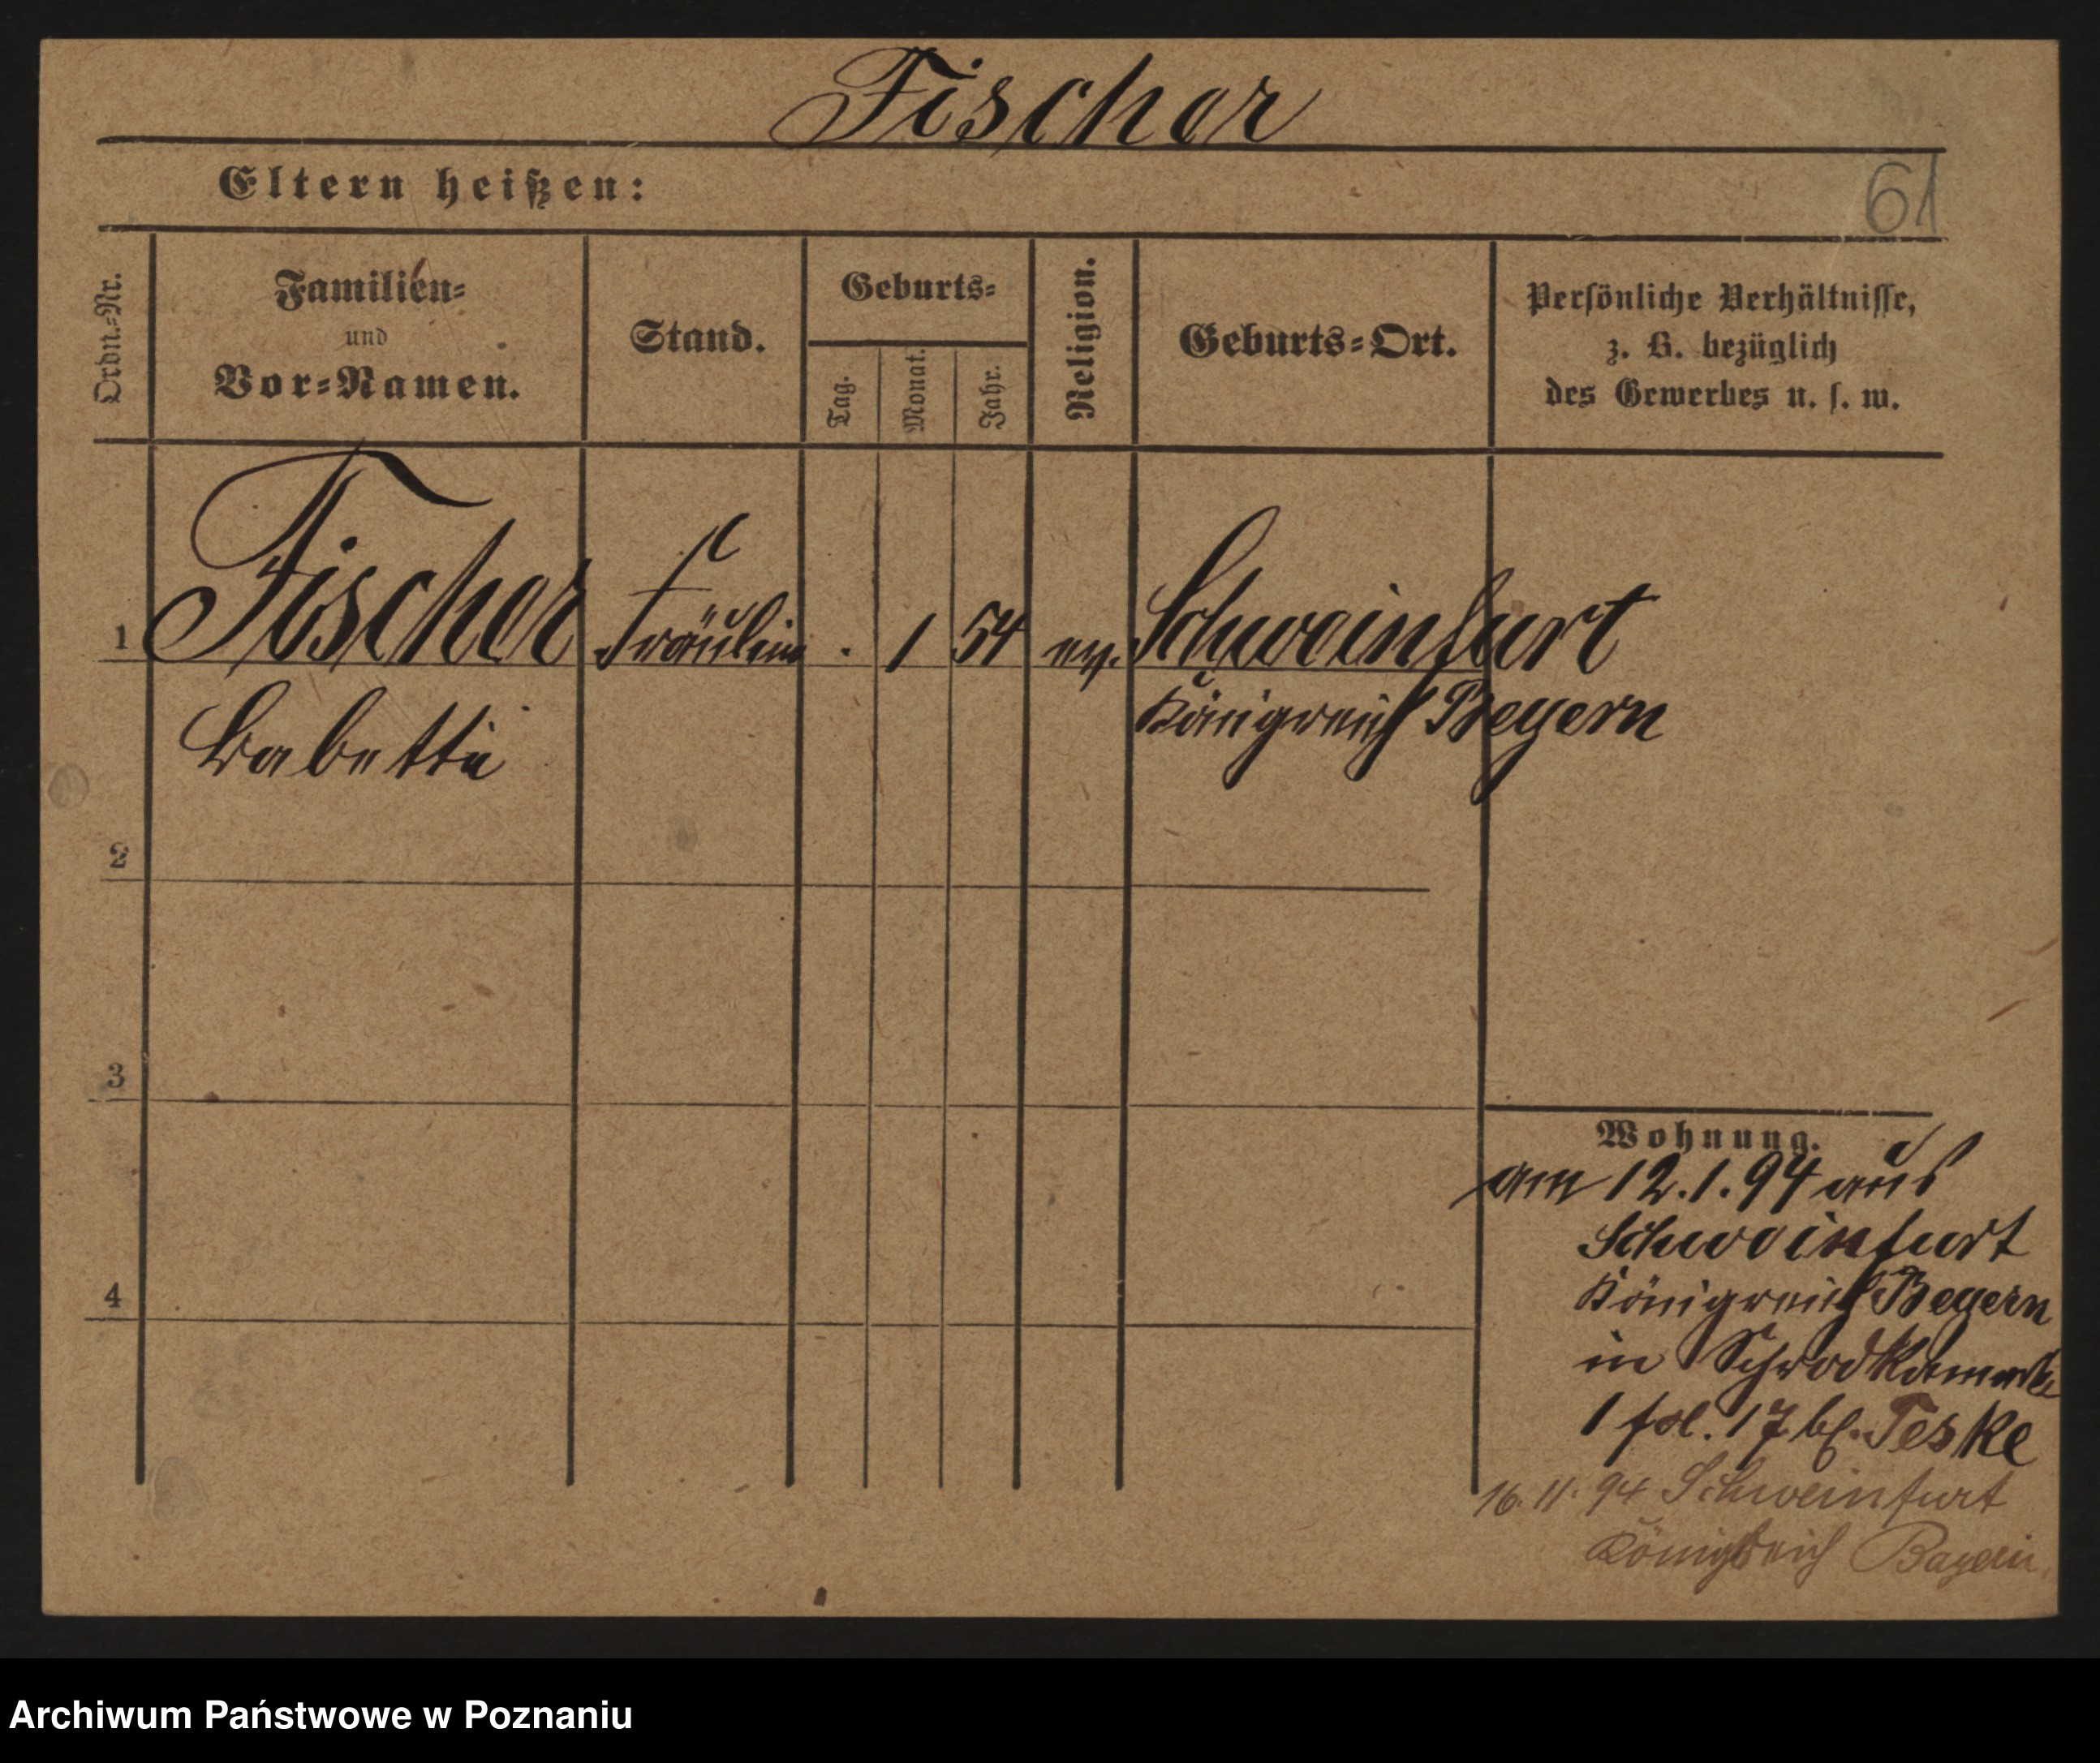 Fischer
Eltern heißen:
61
Ordn.=Nr.
Familien=
und
Vor=Namen.
Stand.
Geburts=
Tag.
Monat.
Jahr.
Religion.
Geburts=Ort.
Persönliche Verhältnisse,
z. B. bezüglich
des Gewerbes u. s. w.
1 Fischer Fräulein . 1 54 ev. Schweinfurt
Babette Königreich Beyern
2
3
4
Wohnung.
am 12.1.94 aus
Schweinfurt
Königreich Beyern
in
1 fol. 17 bf. Teske
16. 11. 94 Schweinfurt
Königreich Bayern
Archiwum Państwowe w Poznaniu